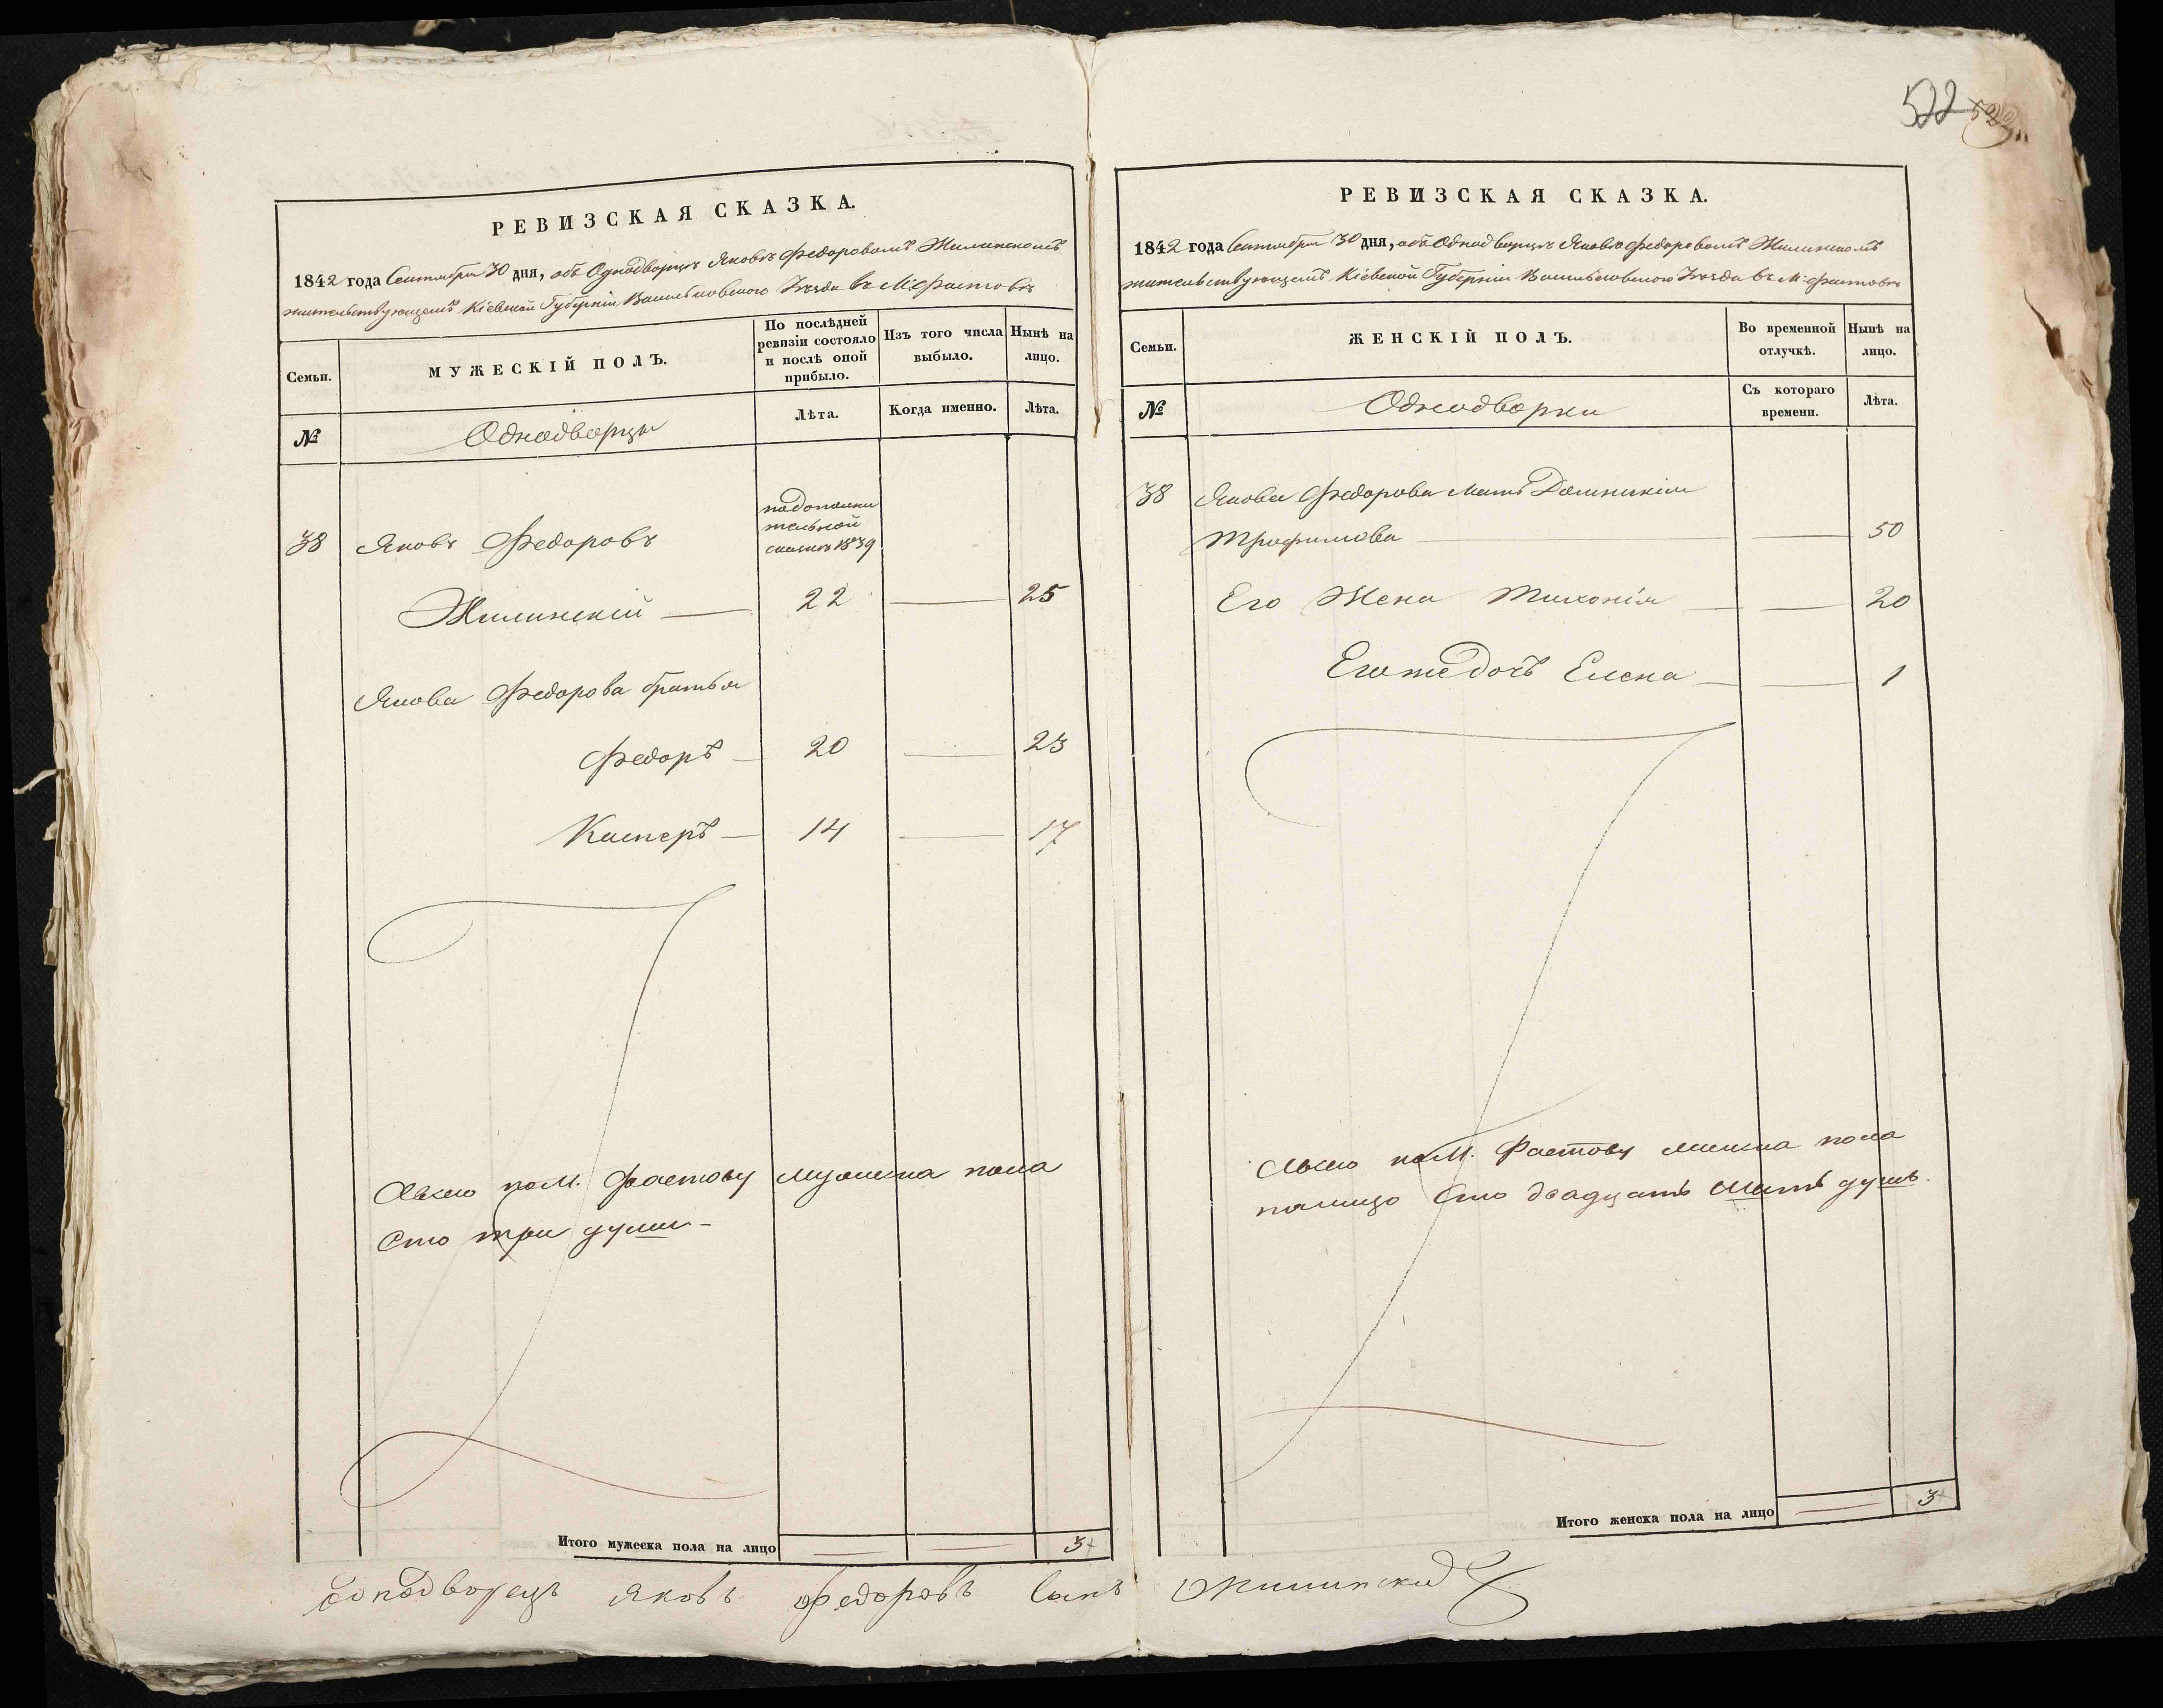 522 522
РЕВИЗСКАЯ СКАЗКА.
1842 года Сентября 30 дня, объ Однодворцѣ Яковѣ Федоровомъ Жилинскомъ
жительствующемъ Кіевской Губерніи Васильковскаго Уѣзда въ М. Фастовѣ
Семьи.
МУЖЕСКІЙ ПОЛЪ.
По послѣдней
ревизіи состояло
и послѣ оной
прибыло.
Изъ того числа
выбыло.
Нынѣ на
лицо.
№
Однодворцы
Лѣта.
Когда именно.
Лѣта.
по дополни
тельной
сказкѣ 1839
38 Яковъ Федоровъ
Жилинскій — 22 — 25
Якова Федорова братья
Федоръ — 20 — 23
Касперъ — 14 — 17
Всего по М. Фастову мужеска пола
Сто три души -
Итого мужеска пола на лицо — — 3
РЕВИЗСКАЯ СКАЗКА.
1842 года Сентября 30 дня, объ Однодворцѣ Яковѣ Федоровомъ Жилинскомъ
жительствующемъ Кіевской Губерніи Васильковскаго Уѣзда въ М. Фастовѣ
Семьи.
ЖЕНСКІЙ ПОЛЪ.
Во временной
отлучкѣ.
Нынѣ на
лицо.
№
Однодворки
Съ котораго
времени.
Лѣта.
38 Якова Федорова мать Домникія
Трофимова — — 50
Его Жена Тихонія — — 20
Его же дочь Елена — — 1
Всего по М. Фастову женска пола
налицо Сто двадцать душъ.
Итого женска пола на лицо — 3
однодворецъ яковъ федоровъ сынъ жилинский